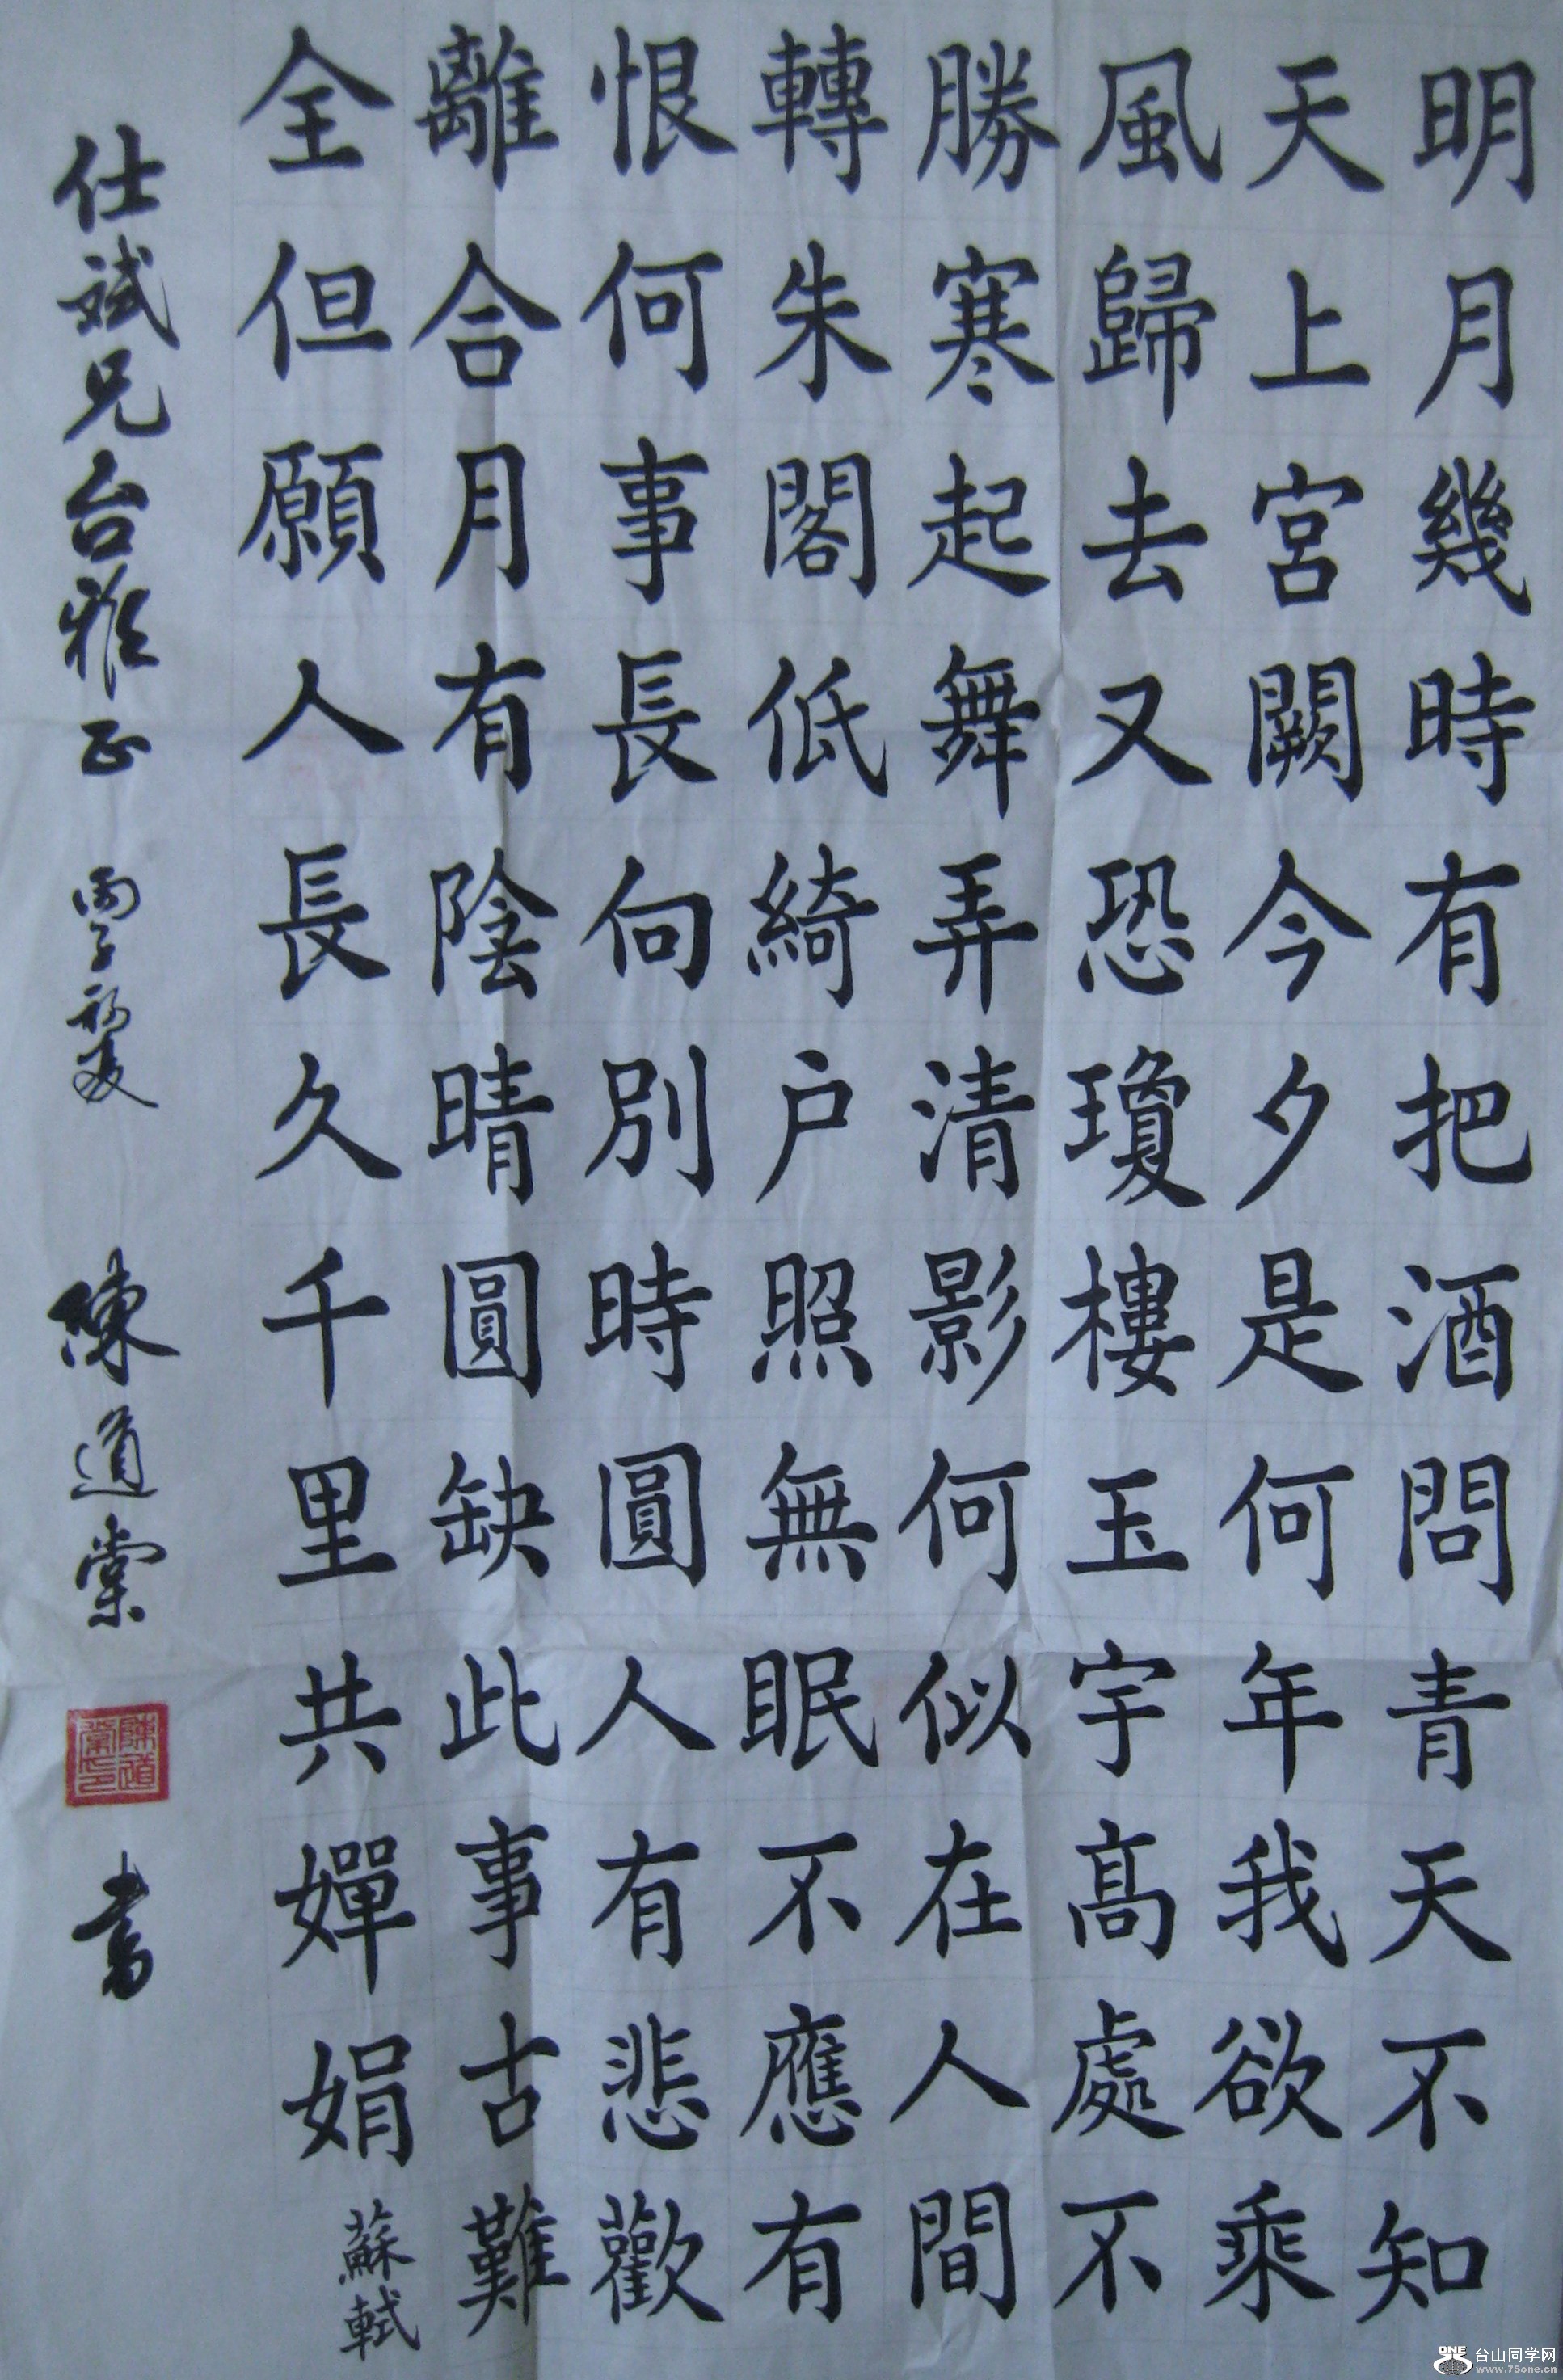 明月幾時有把酒問青天不知
天上宮闕今夕是何年我欲乘
風歸去又恐瓊樓玉宇高處不
勝寒起舞弄清影何似在人間
轉朱閣低綺户照無眠不應有
恨何事長向別時圓人有悲歡
離合月有陰晴圓缺此事古難
全但願人長久千里共嬋娟
蘇軾
仕斌兄台雅正
丙子初夏
陳道棠
陳道棠印
書
ONE 台山同学网
www.75one.cn